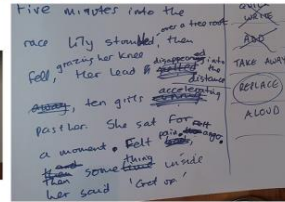 Five minutes into the
over a tree root
race Lily stumbled, then
grazing her knee
fell, Her lead disappeared into
the distance
ten girls accelerating
past her. She sat for
a moment. Felt pain.
something inside
her said 'Get up'
QUICK
WRITE
ADD
TAKE AWAY
REPLACE
ALOUD